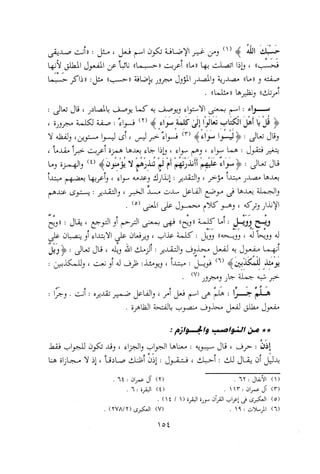 حَسْبَكَ اللَّهُ ﴾ (١) ومن غير الإضافة تكون اسم فعل ، مثل : «أنت صديقى
فَحَسْبُ» ، وإذا اتصلت بها «ما» أعربت «حسبما» نائباً عن المفعول المطلق لأنها
صفته و «ما» مصدرية والمصدر المؤول مجرور بإضافة «حسب» مثل : «ذاكر حسبما
أمرتك» ونظيرها «مثلما» .
ســـواء : اسم بمعنى الاستواء ويوصف به كما يوصف بالمصادر ، قال تعالى :
﴿ قُلْ يَا أَهْلَ الْكِتَابِ تَعَالَوْا إِلَىٰ كَلِمَةٍ سَوَاءٍ ﴾ (٢) فسواءٌ : صفة لكلمة مجرورة ،
وقال تعالى : ﴿ لَيْسُوا سَوَاءً ﴾ (٣) فسواءً خبر ليس ، أى ليسوا مستوين ، ولفظه لا
يتغير فتقول : هما سواء ، وهم سواء ، وإذا جاء بعدها همزة أعربت خبراً مقدماً ،
قال تعالى : ﴿ سَوَاءٌ عَلَيْهِمْ أَأَنذَرْتَهُمْ أَمْ لَمْ تُنذِرْهُمْ لا يُؤْمِنُونَ ﴾ (٤) والهمزة وما
بعدها مصدر مبتدأ مؤخر ، والتقدير : إنذارك وعدمه سواء ، وأعربها بعضهم مبتدأ
والجملة بعدها فى موضع الفاعل سدت مسد الخبر ، والتقدير : يستوى عندهم
الإنذار وتركه ، وهو كلام محمول على المعنى (٥) .
ويـح وويـل : أما كلمة «ويح» فهى بمعنى الترحم أو التوجع ، يقال : «ويحٌ
له وويحاً له ، وويحه» وويل : كلمة عذاب ، ويرفعان على الابتداء أو ينصبان على
أنهما مفعول به لفعل محذوف والتقدير : ألزمك الله ويله ، قال تعالى : ﴿ وَيْلٌ
يَوْمَئِذٍ لِّلْمُكَذِّبِينَ ﴾ (٦) فويلٌ : مبتدأ ، ويومئذ : ظرف له أو نعت ، وللمكذبين :
خبر شبه جملة جار ومجرور (٧) .
هـلـم جـــرا : هلم هى اسم فعل أمر ، والفاعل ضمير تقديره : أنت . وجرًا :
مفعول مطلق لفعل محذوف منصوب بالفتحة الظاهرة .
** مـن النواصب والجـوازم :
إذن : حرف ، قال سيبويه : معناها الجواب والجزاء ، وقد تكون للجواب فقط
بدليل أن يقال لك : أحبك ، فـتـقـول : إذن أظنك صادقـاً ، إذ لا مجازاة هنا
(١) الأنفال : ٦٢ .
(٢) آل عمران : ٦٤ .
(٣) آل عمران : ١١٣ .
(٤) البقرة : ٦ .
(٥) العكبرى فى إعراب القرآن سورة البقرة (١ / ١٤) .
(٦) المرسلات : ١٩ .
(٧) العكبرى (٢/٢٧٨) .
١٥٤